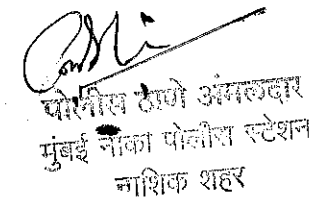 पोलीस ठाणे अंमलदार
मुंबई नाका पोलीस स्टेशन
नाशिक शहर